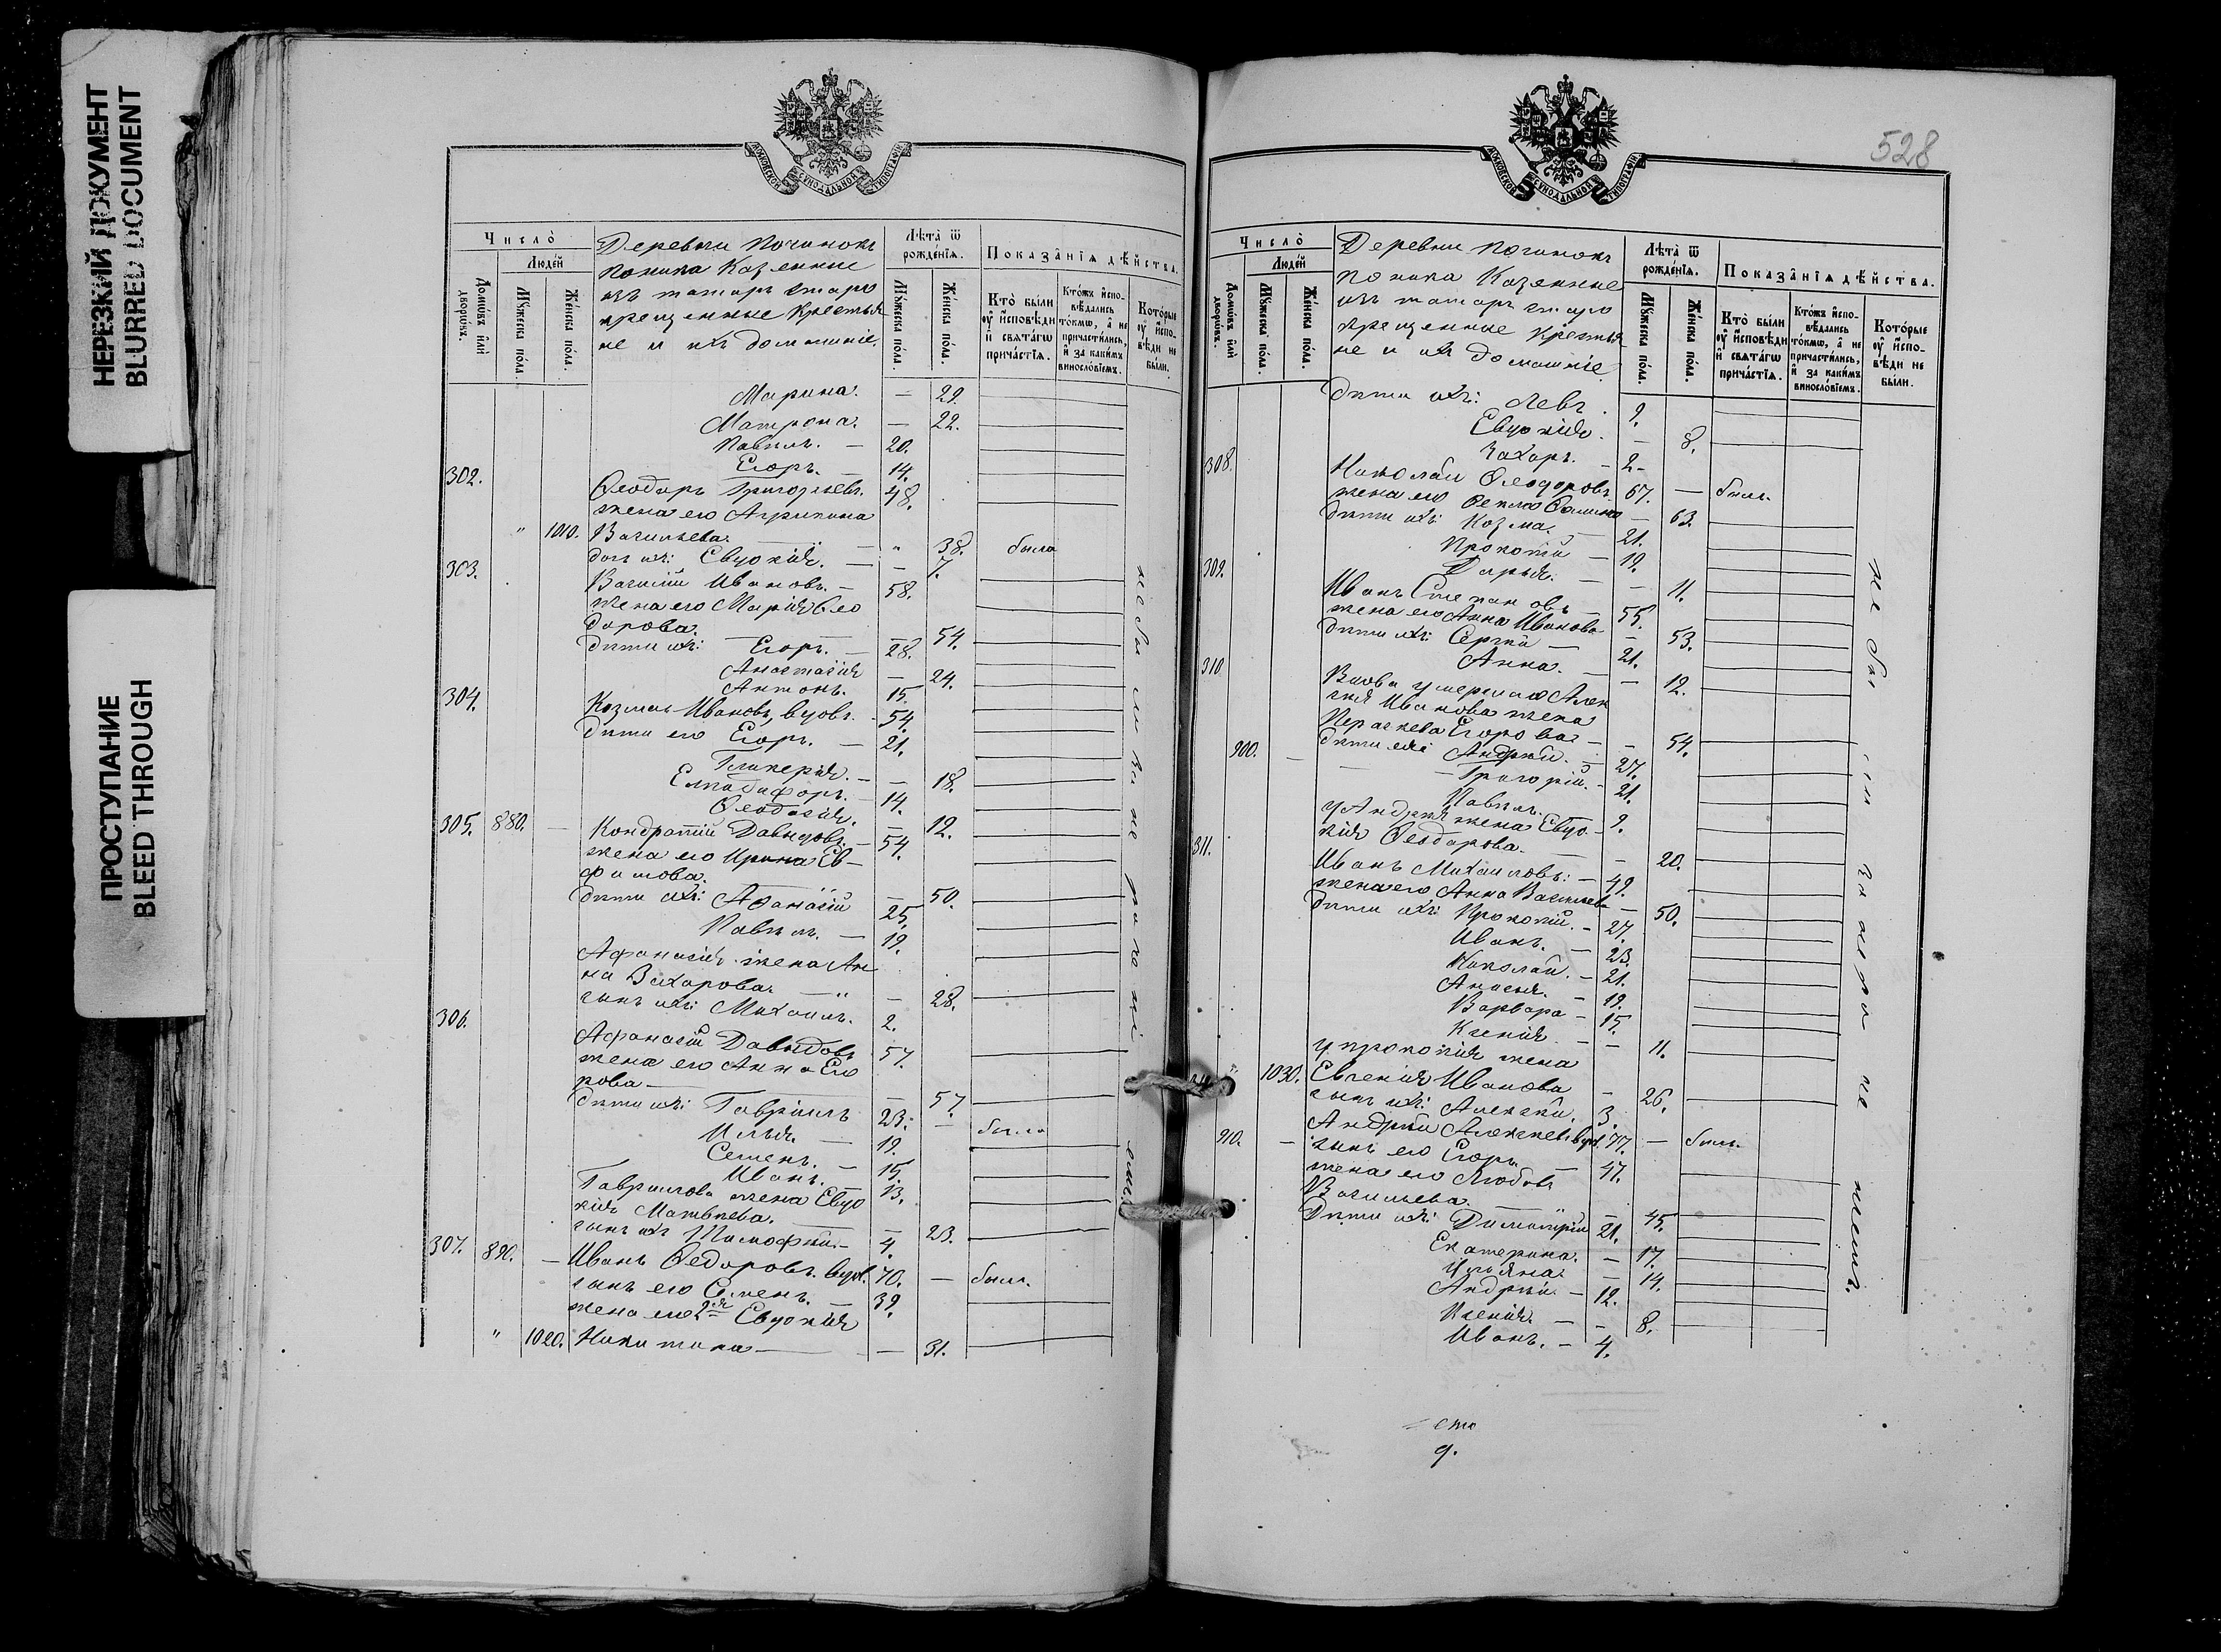 НЕРЕЗКИЙ ДОКУМЕНТ
BLURRED DOCUMENT
ПРОСТУПАНИЕ
BLEED THROUGH
МОСКОВСКОЙ СѴНОДАЛЬНОЙ ТИПОГРАФІИ
Число̀
Людéй
Домѡ́въ и҆лѝ дворѡ́въ.
Мꙋ́жеска по́ла.
Же́нска по́ла.
Деревни Починокъ
Поника Казенные
изъ татаръ старо
крещенные Крестья
не и ихъ домашніе.
Лѣта̀ ѿ рожде́нїѧ.
Мꙋ́жеска по́ла.
Же́нска по́ла.
Показа́нїѧ дѣ́йства.
Кто̀ бы́ли ᲂу҆ и҆сповѣ́ди и҆ свѧта́гѡ прича́стїѧ.
Кто́жъ и҆сповѣ́дались то́кмѡ, а҆ не причасти́лись, и҆ за каки́мъ виносло́вїемъ.
Кото́рые ᲂу҆ и҆сповѣ́ди не бы́ли.
Марина. — 29.
Матрона. — 22.
Павелъ. — 20.
Егоръ. — 14.
302. Ѳеодоръ Григорьевъ. 48.
жена его Агрипина
" 1010. Васильева. — " 38. была
дочь ихъ: Евдокія. — — 7.
303. Василій Ивановъ. — 58.
жена его Марія Ѳео
дорова. — 54.
дѣти ихъ: Егоръ. — 28.
Анастасія — 24.
Антонъ. 15.
304. Козма Ивановъ, вдовъ. 54.
дѣти его Егоръ. — 21.
Гликерія. — — 18.
Елпидифоръ. — 14.
Ѳеодосія. — 12.
305. 880. — Кондратій Давыдовъ. — 54.
жена его Ирина Ев-
фимова. — 50.
дѣти ихъ: Афанасій 25.
Павелъ. — 19.
Афанасія жена Ан
на Захарова. — " — 28.
сынъ ихъ: Михаилъ. 2.
306. Афанасій Давыдовъ 57.
жена его Анна Его
рова — — 57.
дѣти ихъ: Гавріилъ 23. — была
Илья. — 19.
Семенъ. — 15.
Иванъ. — 13.
Гавріилова жена Евдо
кія Матвѣева. — — 23.
сынъ ихъ Тимофѣй. — 4.
307. 890. — Иванъ Ѳедоровъ. вдов. 70. — былъ.
сынъ его Семенъ. — 39.
жена его 2я Евдокія
" 1020. Никитина — — 31.
528
МОСКОВСКОЙ СѴНОДАЛЬНОЙ ТИПОГРАФІИ
Число̀
Людéй
Домѡ́въ и҆лѝ дворѡ́въ.
Мꙋ́жеска по́ла.
Же́нска по́ла.
Деревни Починокъ
Поника Казенные
изъ татаръ старо
крещенные Крестья
не и ихъ домашніе.
Лѣта̀ ѿ рожде́нїѧ.
Мꙋ́жеска по́ла.
Же́нска по́ла.
Показа́нїѧ дѣ́йства.
Кто̀ бы́ли ᲂу҆ и҆сповѣ́ди и҆ свѧта́гѡ прича́стїѧ.
Кто́жъ и҆сповѣ́дались то́кмѡ, а҆ не причасти́лись, и҆ за каки́мъ виносло́вїемъ.
Кото́рые ᲂу҆ и҆сповѣ́ди не бы́ли.
дѣти ихъ: Левъ. 9.
Евдокія. — 8.
Захаръ. — 2.
308. Николай Ѳеодоровъ. 67. — былъ.
жена его Ѳекла — 63.
дѣти ихъ: Козма. — 21.
Прокопій — 19.
Дарья. — — 11.
309. Иванъ Степановъ — 55.
жена его Анна Иванова — 53.
дѣти ихъ: Сергѣй — 21.
Анна. — — 12.
310. Вдова умершаго Алек
сѣя Иванова жена
Параскева Егорова — — 54.
900. — дѣти ея: Андрей. — 27.
Григорій. — 21.
Павелъ. 9.
у Андрея жена Евдо-
кія Ѳеодорова. — — 20.
311. Иванъ Михаиловъ: — 49.
жена его Анна Васильева — 50.
дѣти ихъ: Прокопій. — 27.
Иванъ. — 23.
Николай. — 21.
Анисья. — 19.
Варвара — 15.
Ксенія. — — 11.
у Прокопія жена
" 1030. Евгенія Иванова — 26.
сынъ ихъ: Алексѣй. 3.
910. — Андрей Алексѣевъ вдов. 77. — былъ.
сынъ его Егоръ — 47.
жена его Любовь
Васильева — — 45.
Дѣти ихъ: Димитрій 21.
Екатерина. — 17.
Ульяна. — 14.
Андрей. — 12.
Ксенія. — — 8.
Иванъ. — 4.
сто
9.